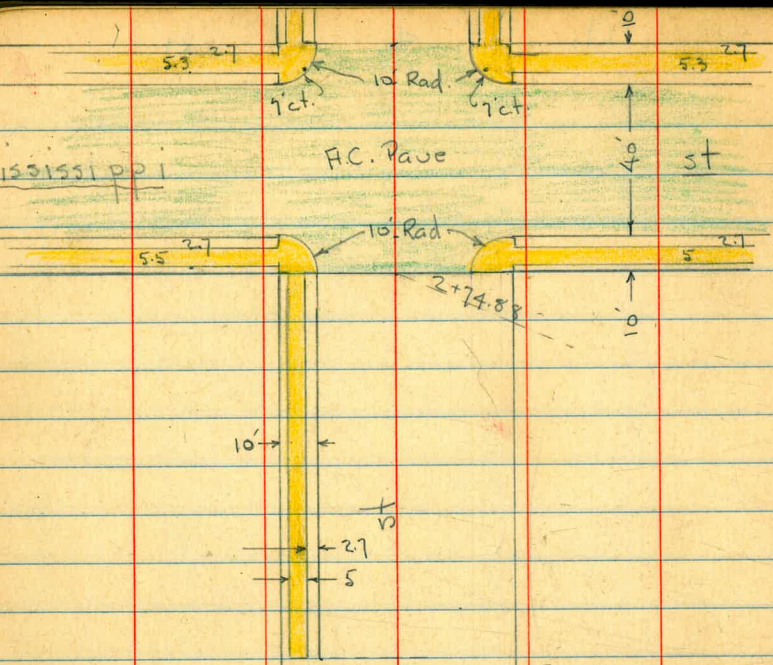 10
5.3 2.7 10' Rad. 5.3 2.7
7'ct. 7'ct.
ississippi A.C. Pave 40' st
10' Rad
5.5 2.7 5 2.7
2+74.88 10
10'
st
2.7
5